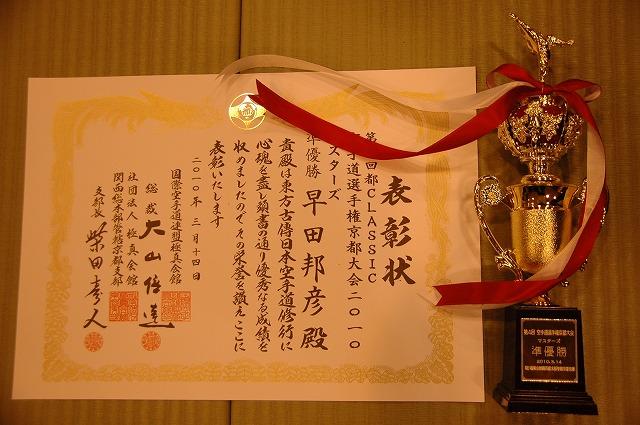 表彰状
回都CLASSIC
手道選手権京都大会二〇一〇
スターズ
準優勝
早田邦彦殿
貴殿は東方古傳日本空手道修行に
心魂を盡し頭書の通り優秀なる成績を
収めましたのでその栄誉を讃えここに
表彰いたします
二〇一〇年三月十四日
国際空手道連盟極真会館
総裁 大山倍達
社団法人極真会館
関西総本部管轄京都支部
支部長 柴田孝人
第4回 空手道選手権京都大会
マスターズ
準優勝
2010.3.14